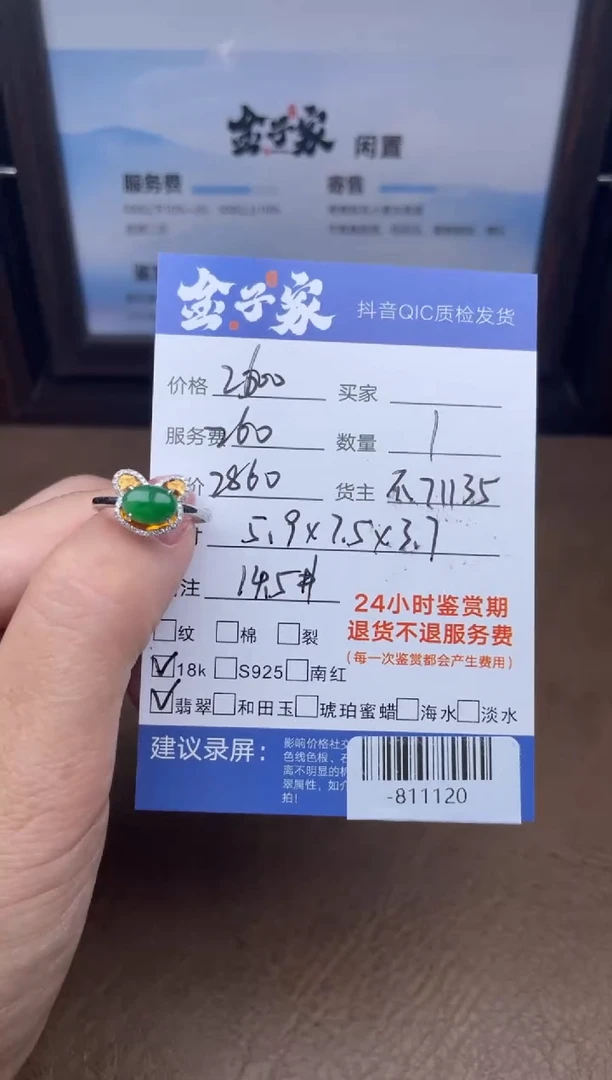 金子家 闲置
服务费 寄售
金子家 抖音QIC质检发货
价格 2600 买家
服务费 260 数量 1
价 2860 货主 不71135
5.9×7.5×3.7
注 14.5#
24小时鉴赏期
退货不退服务费
(每一次鉴赏都会产生费用)
纹 棉 裂
18k S925 南红
翡翠 和田玉 琥珀蜜蜡 海水 淡水
建议录屏:
影响价格社交
色线色根、石
离不明显的
翠属性,如介
拍!
-811120